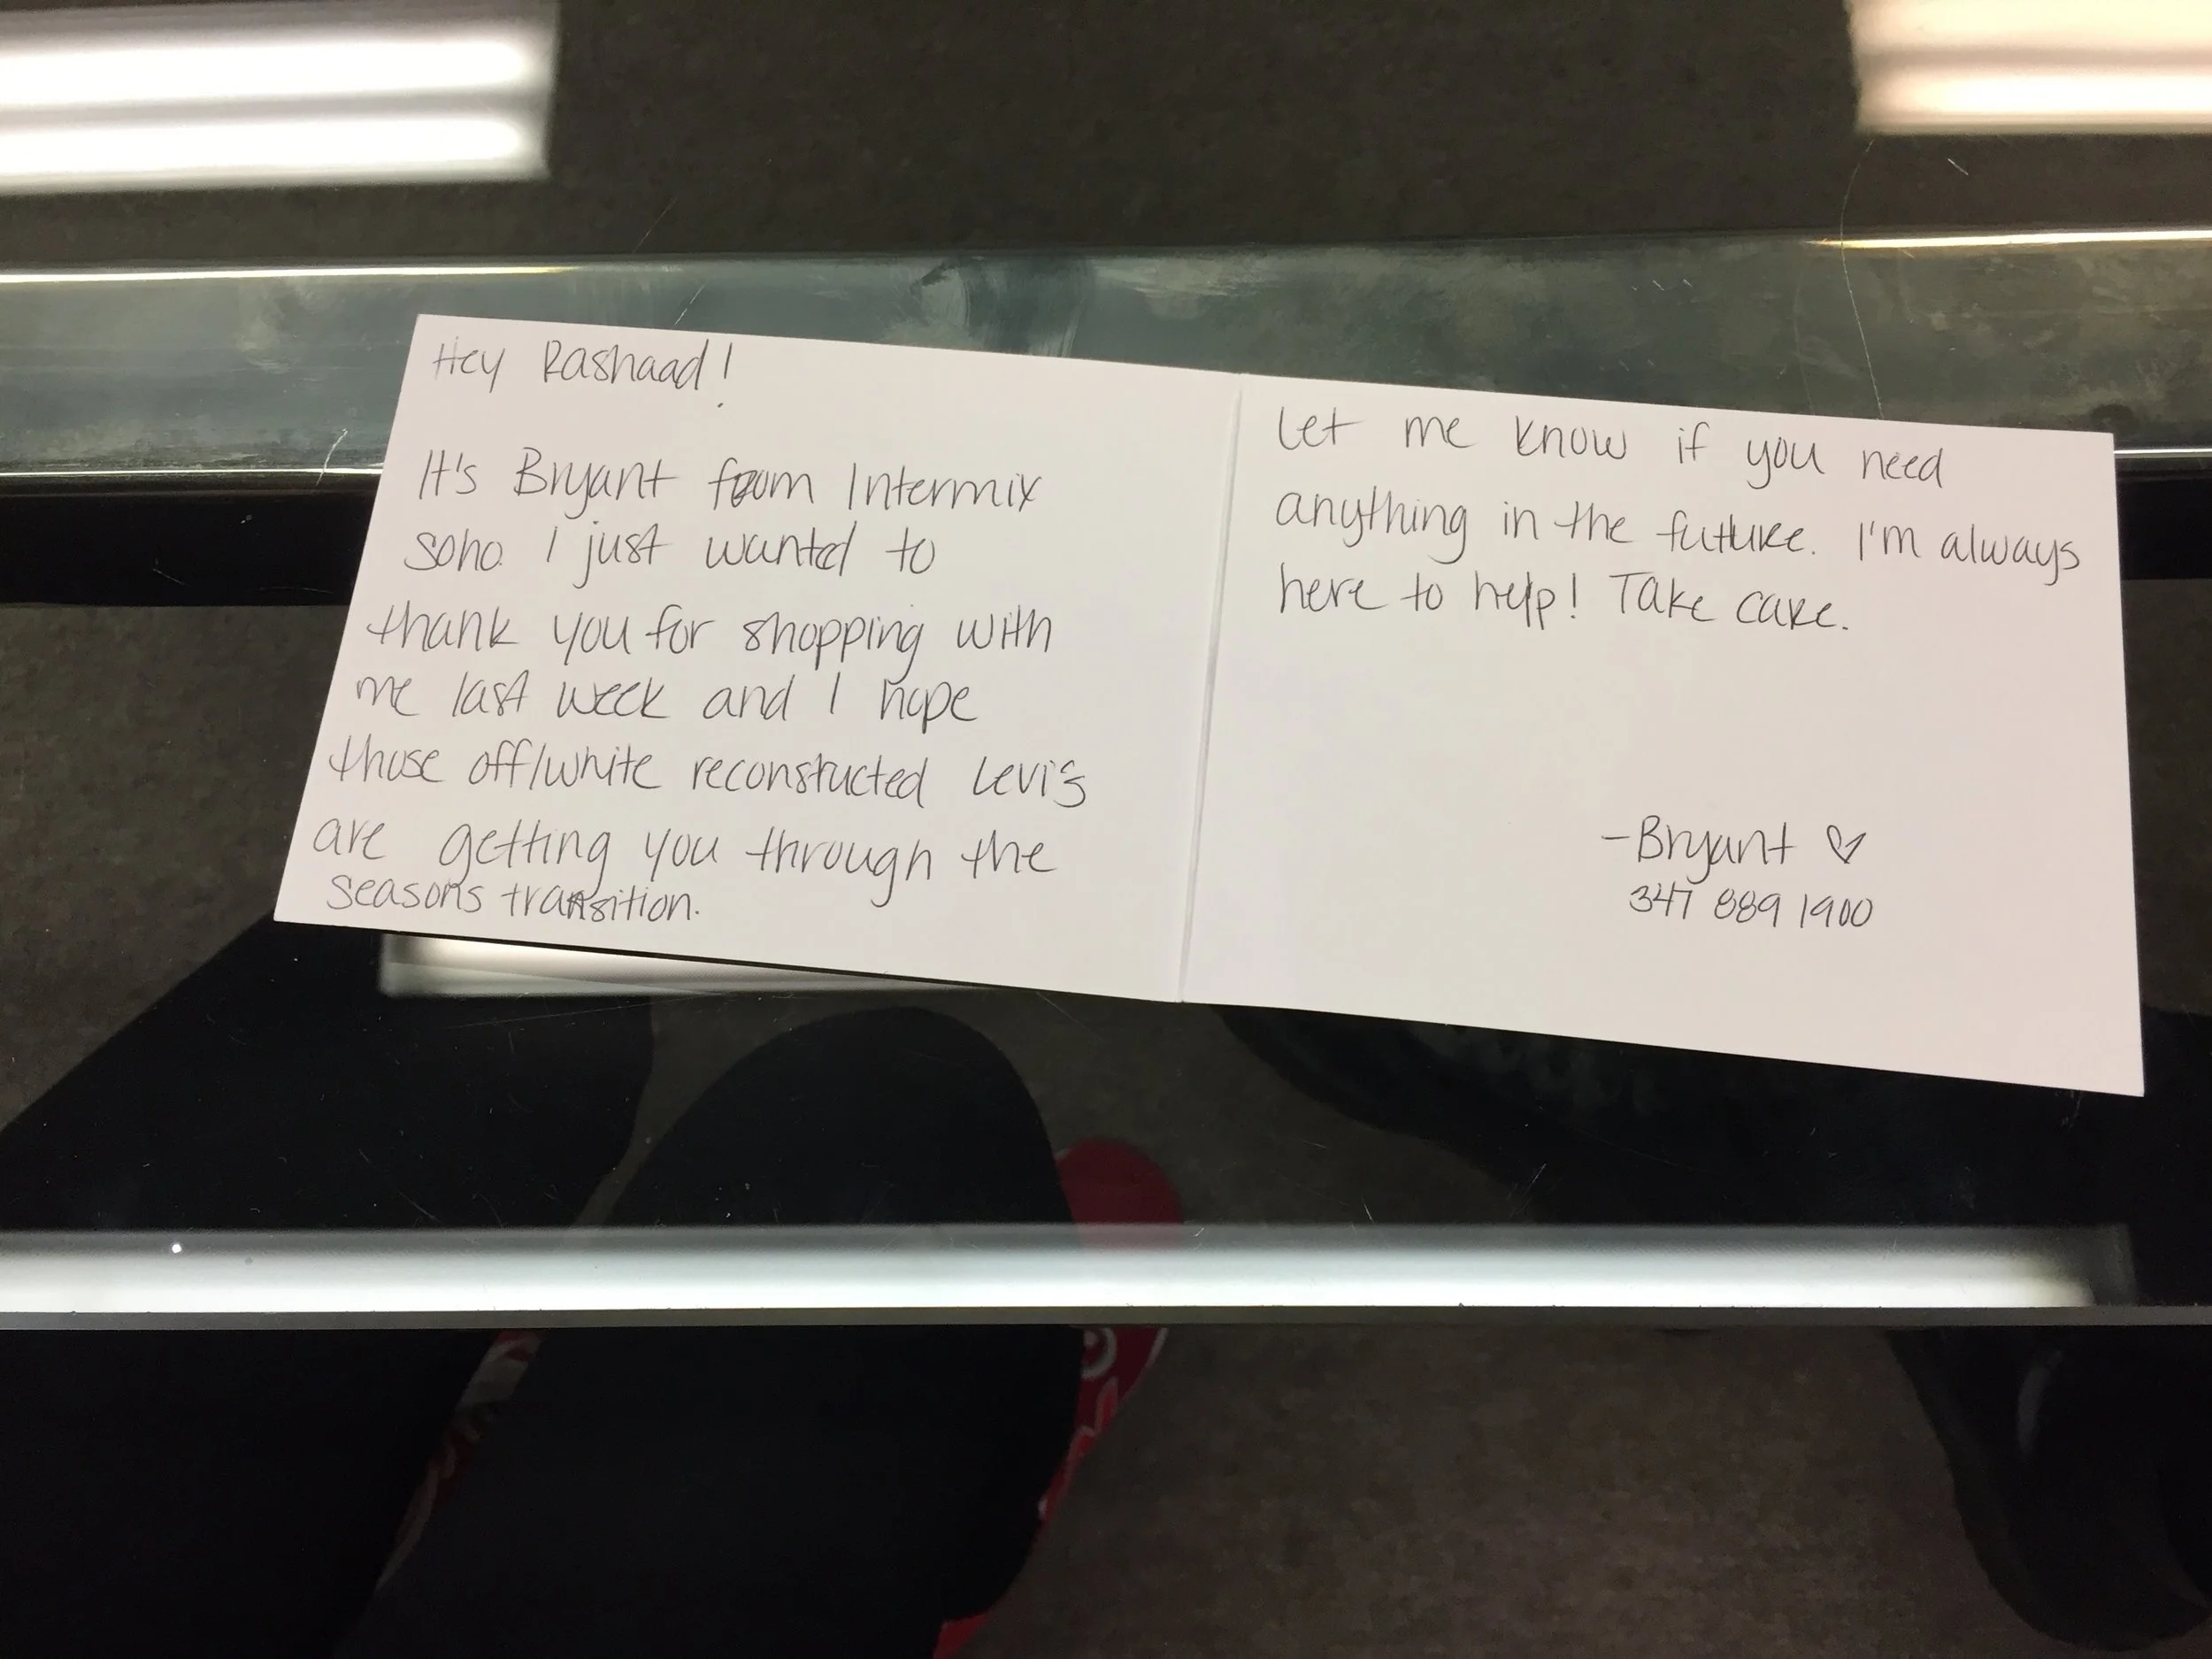 Hey Rashaad!
It's Bryant from Intermix
soho. I just wanted to
thank you for shopping with
me last week and I hope
those off/white reconstucted Levi's
are getting you through the
seasons transition.
Let me know if you need
anything in the future. I'm always
here to help! Take care.
-Bryant ♡
347 889 1900